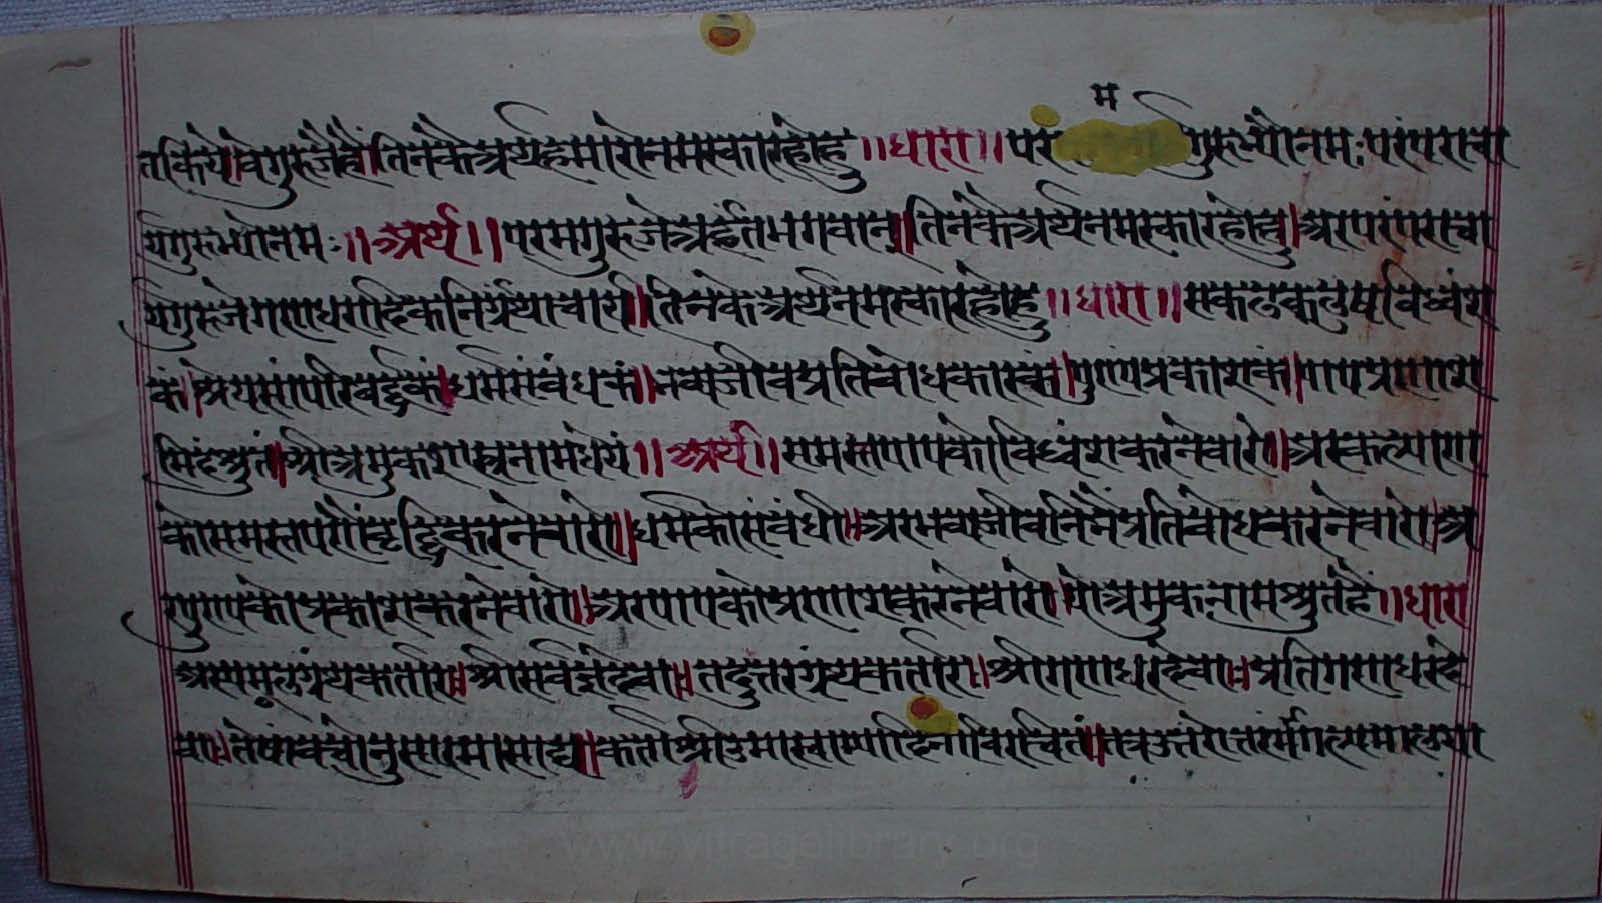 म
तकिये।वेगुरूजैहैं।तिनंकेअर्थहमारोनमस्कारहोहु॥धारा॥परं गुरूभ्योनमः परंपराचा
र्यगुरूभ्योनमः॥अर्थ॥परमगुरूजेअर्हंतभगवान्।तिनंकैअर्थनमस्कारहोहु।अरपरंपराचा
र्यगुरूजेगणधरादिकनिर्ग्रंथाचारी।तिनकेअर्थनमस्कारहोहु॥धारा॥सकलकलुषविध्वंश
कं।श्रेयसांपरिवर्द्धकं।धर्मसंबंधकं।भव्यजीवप्रतिबोधकारकं।पुण्यप्रकाशकं।पापप्रणाश
मिदंश्रुतं।श्रीअमुकशास्त्रनामधेयं॥अर्थ॥समस्तपापकोविध्वंशकरनेवारो।अरकल्याण
कोसमस्तपणैंवृद्धिकरनेवारो।धर्मकोसंबंधी।अरभव्यजीवनिनैंप्रतिबोधकरनेवारो।अ
रपुण्यकोप्रकाशकरनेवारो।अरपापकोप्रणाशकरनेवारो।योअमुकनामश्रुतहै॥धारा
अस्यमूलग्रंथकर्तारः।श्रीसर्वज्ञदेवाः।तदुत्तरग्रंथकर्तारः।श्रीगणधरदेवाः।प्रतिगणधरदे
वाः।तेषांवचोनुसारमासाद्य।कर्ताश्रीउमास्वाम्यादिनाविरचितं।तत्रउत्तरोत्तरमंगल्यमालया
www.vitragelibrary.org